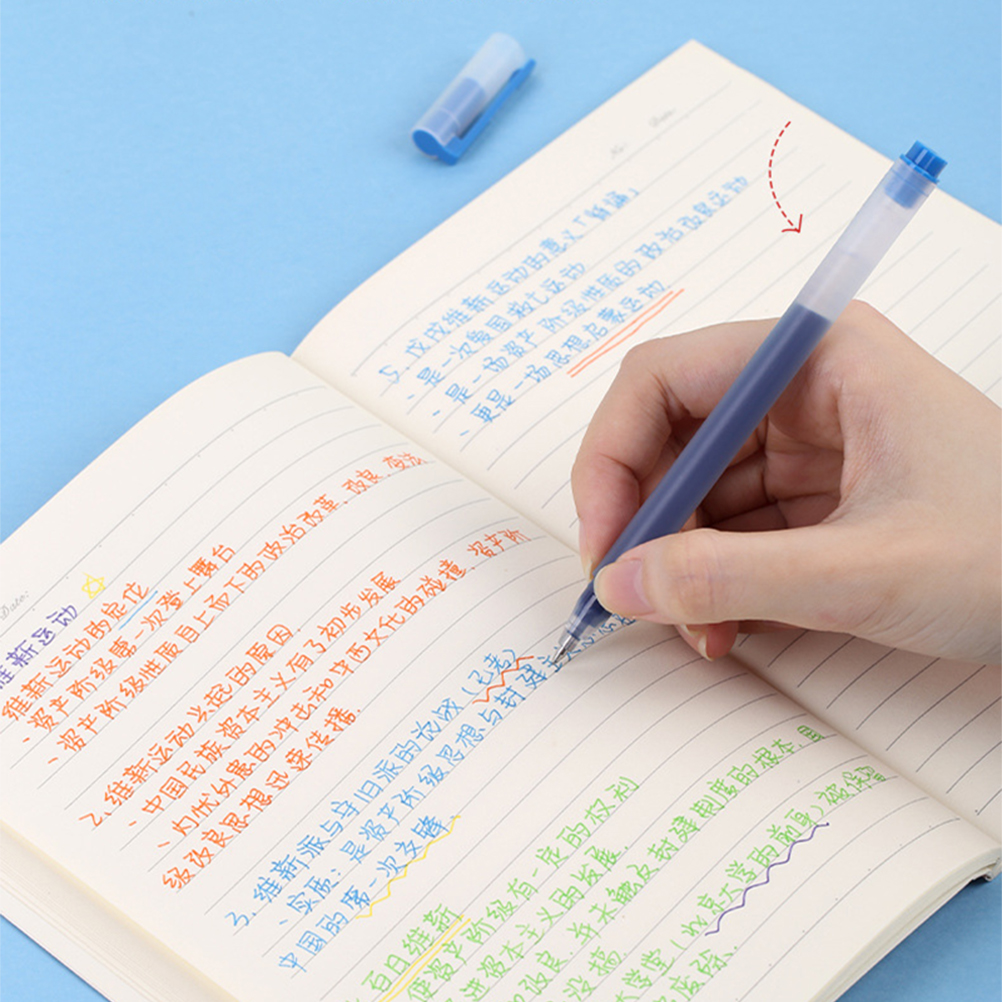 Date:
维新运动
维新运动的定位
、资产阶级第一次登上舞台
、资产阶级性质自上而下的政治改革、改良、变法
2、维新运动兴起的原因
、中国民族资本主义有了初步发展
、内忧外患的冲击和中西文化的碰撞,资产阶
级改良思想迅速传播.
3、维新派与守旧派的论战
、实质:是资产阶级思想与封建
中国的第一次交锋.
百日维新
使资产阶级有一定的权利
进资本主义的发展.
改良,并未触及封建制度的根本,且
没搞
大学堂(北京大学的前身)被保留
废除.
No.
Date.
5、戊戌维新运动的意义「
、是一次爱国救亡运动
、是一场资产阶级性质的政治改良运动
、更是一场思想启蒙运动.